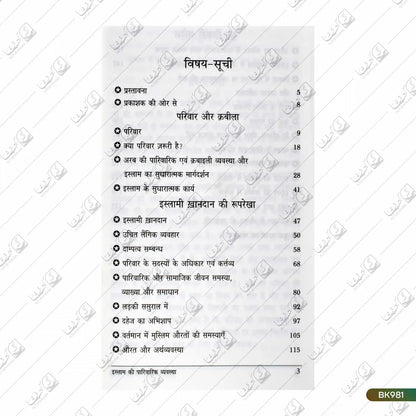 विषय-सूची
✪ प्रस्तावना 5
✪ प्रकाशक की ओर से 8
परिवार और क़बीला
✪ परिवार 9
✪ क्या परिवार ज़रूरी है? 18
✪ अरब की पारिवारिक एवं क़बाइली व्यवस्था और
इस्लाम का सुधारात्मक मार्गदर्शन 28
✪ इस्लाम के सुधारात्मक कार्य 41
इस्लामी ख़ानदान की रूपरेखा
✪ इस्लामी ख़ानदान 47
✪ उचित लैंगिक व्यवहार 50
✪ दाम्पत्य सम्बन्ध 58
✪ परिवार के सदस्यों के अधिकार एवं कर्त्तव्य 68
✪ पारिवारिक और सामाजिक जीवन समस्या,
व्याख्या और समाधान 80
✪ लड़की ससुराल में 92
✪ दहेज का अभिशाप 97
✪ वर्तमान में मुस्लिम औरतों की समस्याएँ 105
✪ औरत और अर्थव्यवस्था 115
इस्लाम की पारिवारिक व्यवस्था 3
BK981